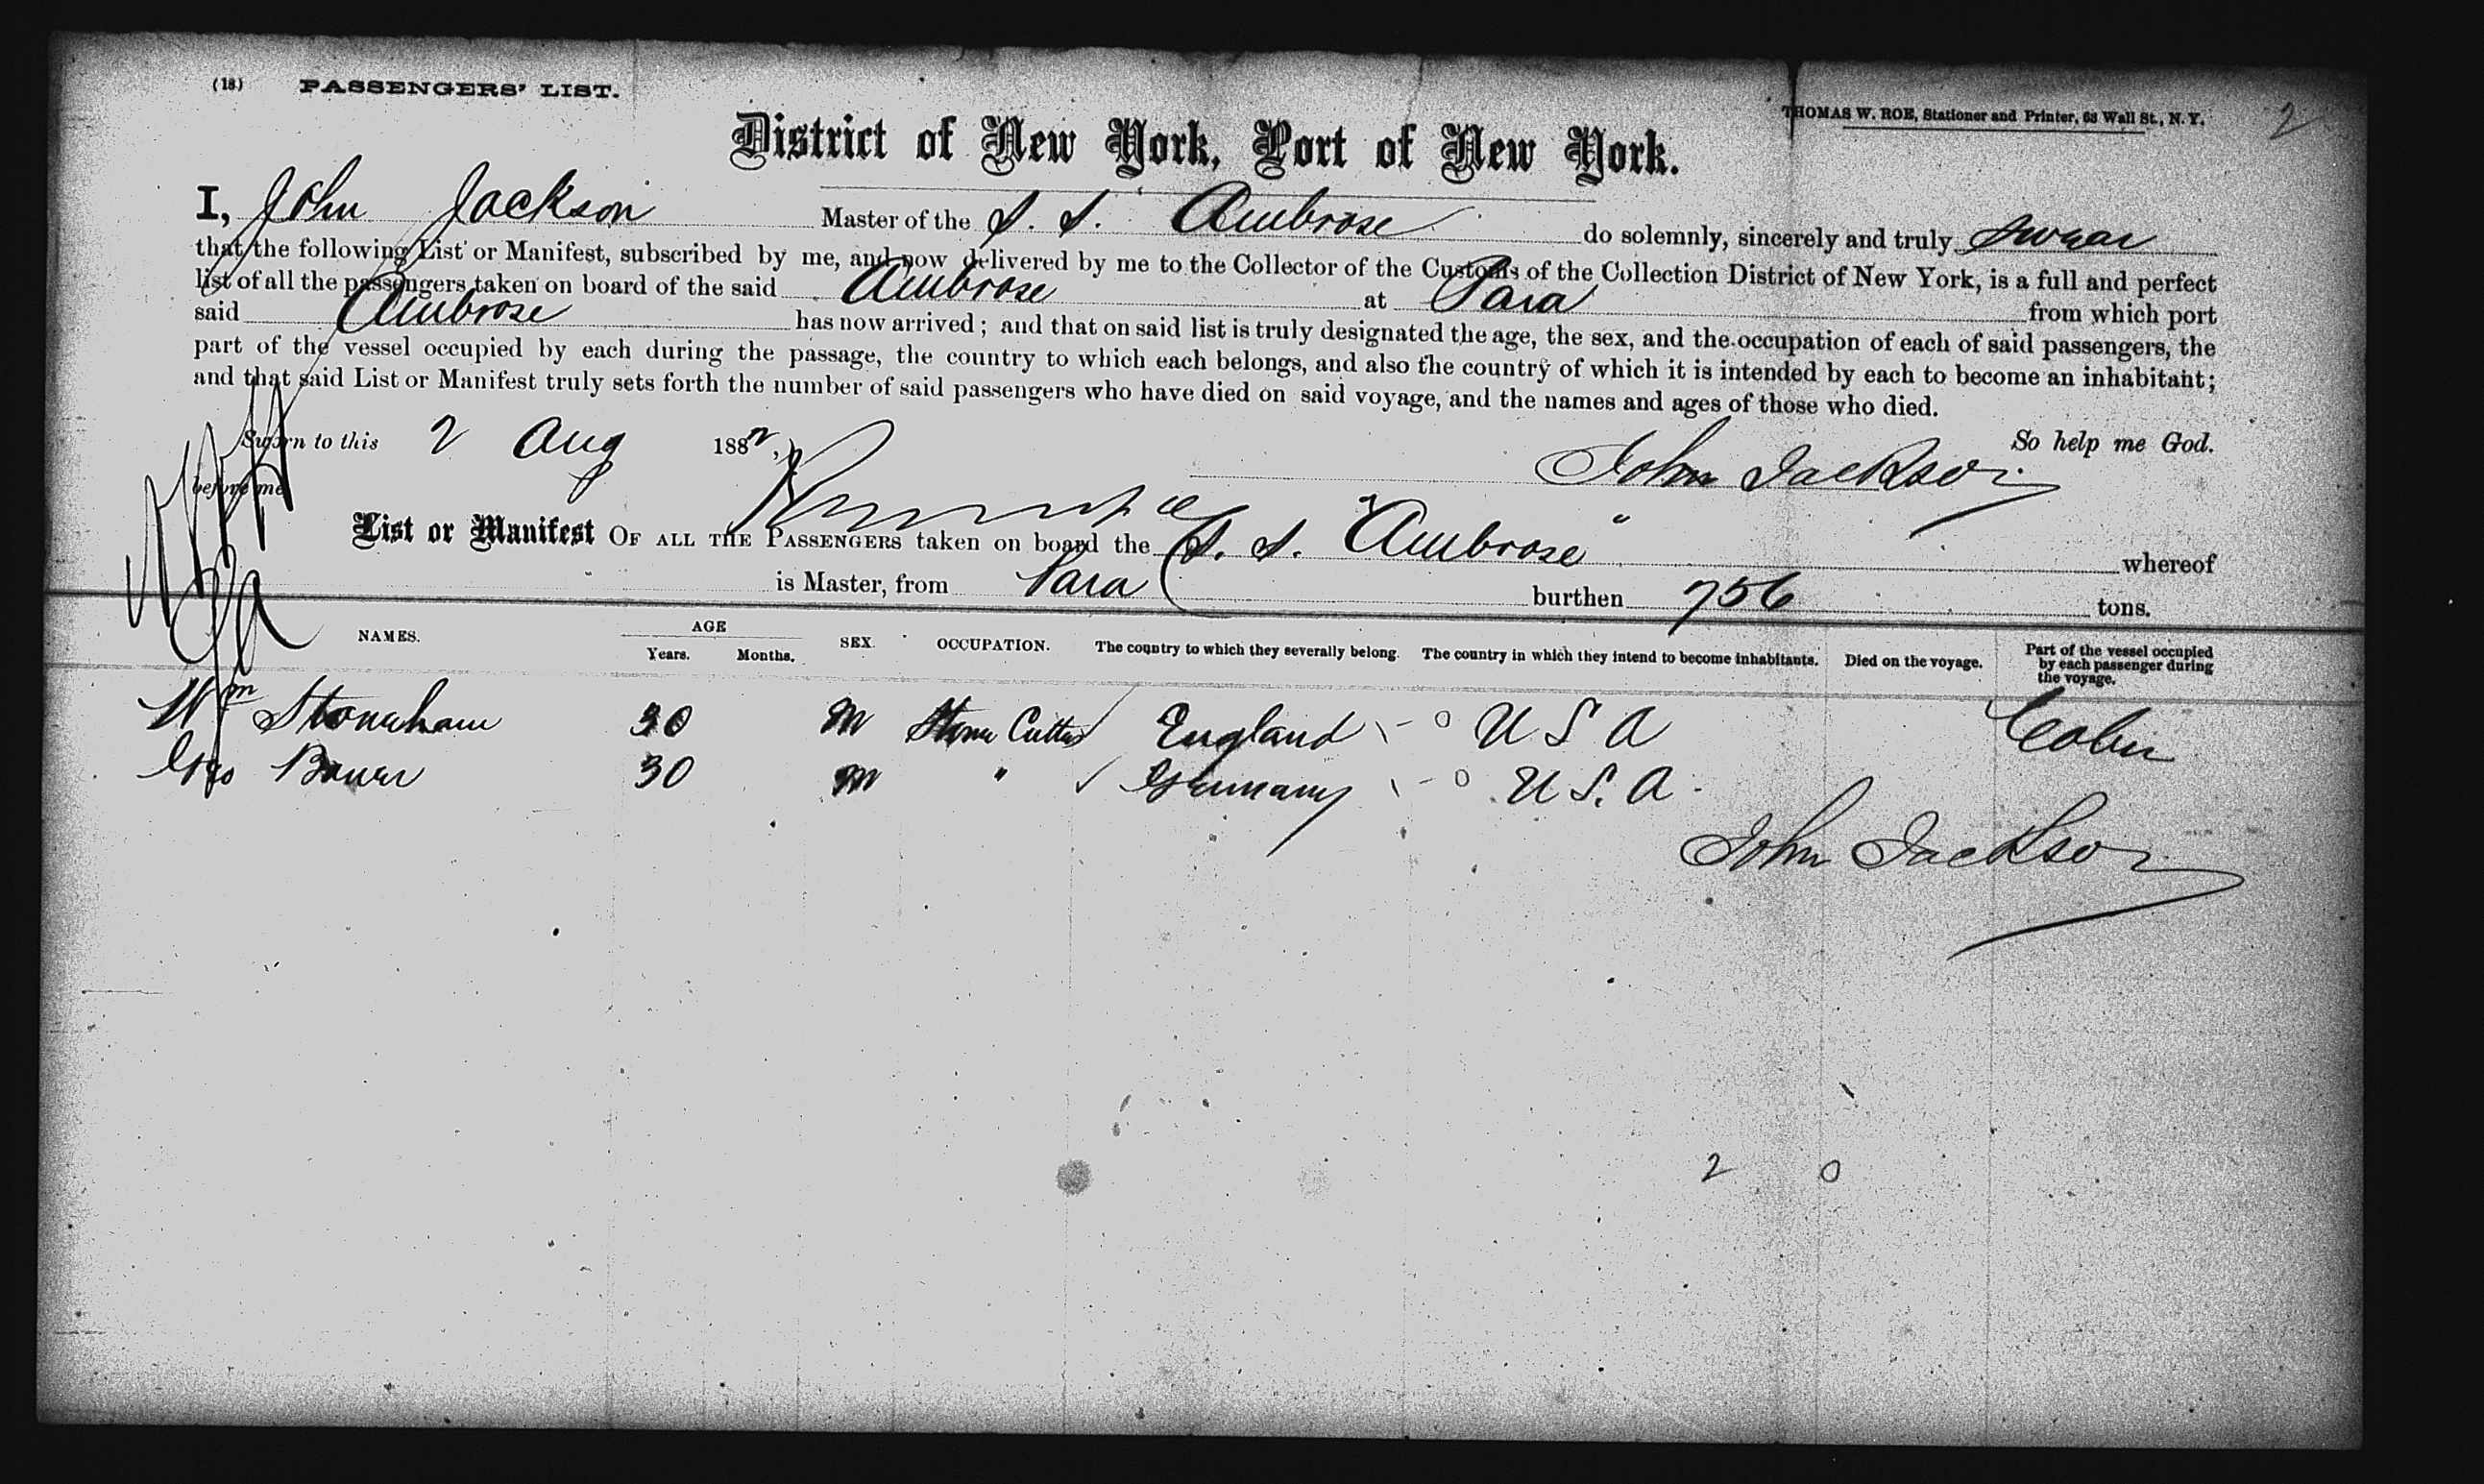 (18) PASSENGERS' LIST.
THOMAS W. ROE, Stationer and Printer, 63 Wall St., N. Y.
2
District of New York, Port of New York.
I, John Jackson Master of the S. S. Ambrose do solemnly, sincerely and truly swear
that the following List or Manifest, subscribed by me, and now delivered by me to the Collector of the Customs of the Collection District of New York, is a full and perfect
list of all the passengers taken on board of the said Ambrose at Para from which port
said Ambrose has now arrived; and that on said list is truly designated the age, the sex, and the occupation of each of said passengers, the
part of the vessel occupied by each during the passage, the country to which each belongs, and also the country of which it is intended by each to become an inhabitant;
and that said List or Manifest truly sets forth the number of said passengers who have died on said voyage, and the names and ages of those who died.
So help me God.
Sworn to this 2 Aug 1882,
John Jackson
before me
List or Manifest OF ALL THE PASSENGERS taken on board the S. S. "Ambrose" whereof
is Master, from Para burthen 756 tons.
NAMES. AGE Years. Months. SEX. OCCUPATION. The country to which they severally belong. The country in which they intend to become inhabitants. Died on the voyage. Part of the vessel occupied by each passenger during the voyage.
Wm Stoneham 30 M Stone Cutter England U S A Cabin
Geo Bauer 30 M " Germany U. S. A.
John Jackson
2 0